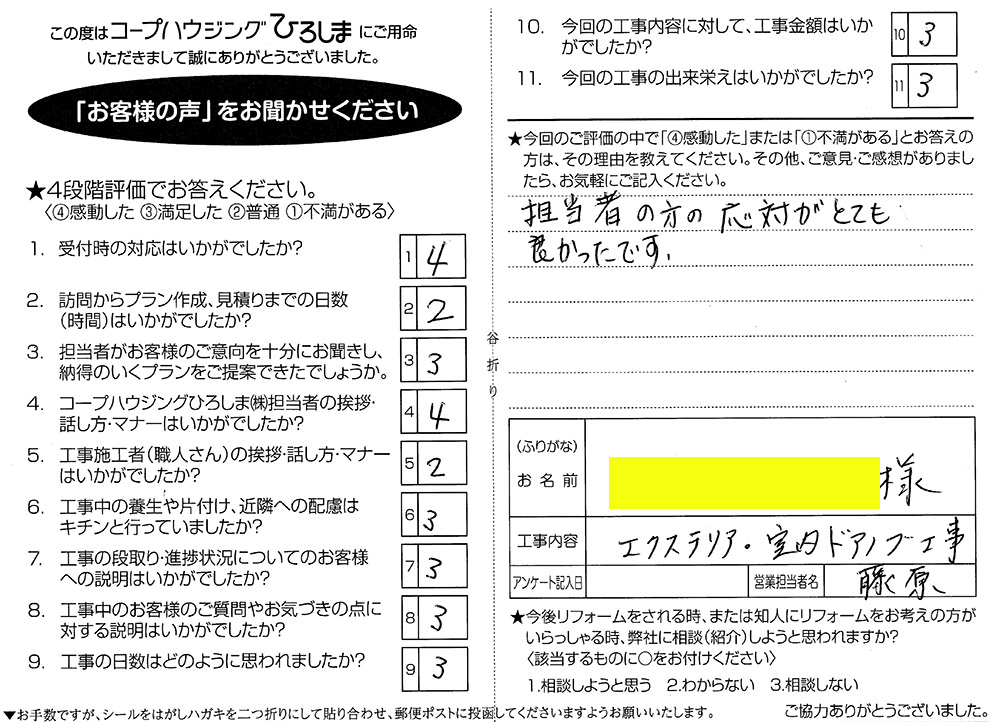 この度はコープハウジングひろしまにご用命
いただきまして誠にありがとうございました。
「お客様の声」をお聞かせください
★4段階評価でお答えください。
〈④感動した ③満足した ②普通 ①不満がある〉
1. 受付時の対応はいかがでしたか?
1 4
2. 訪問からプラン作成、見積りまでの日数
(時間)はいかがでしたか?
2 2
3. 担当者がお客様のご意向を十分にお聞きし、
納得のいくプランをご提案できたでしょうか。
3 3
4. コープハウジングひろしま㈱担当者の挨拶・
話し方・マナーはいかがでしたか?
4 4
5. 工事施工者(職人さん)の挨拶・話し方・マナー
はいかがでしたか?
5 2
6. 工事中の養生や片付け、近隣への配慮は
キチンと行っていましたか?
6 3
7. 工事の段取り・進捗状況についてのお客様
への説明はいかがでしたか?
7 3
8. 工事中のお客様のご質問やお気づきの点に
対する説明はいかがでしたか?
8 3
9. 工事の日数はどのように思われましたか?
9 3
▼お手数ですが、シールをはがしハガキを二つ折りにして貼り合わせ、郵便ポストに投函してくださいますようお願いいたします。
谷折り
10. 今回の工事内容に対して、工事金額はいか
がでしたか?
10 3
11. 今回の工事の出来栄えはいかがでしたか?
11 3
★今回のご評価の中で「④感動した」または「①不満がある」とお答えの
方は、その理由を教えてください。その他、ご意見・ご感想がありまし
たら、お気軽にご記入ください。
担当者の方の応対がとても
良かったです.
(ふりがな)
お名前
様
工事内容
エクステリア・室内ドアノブ工事
アンケート記入日
営業担当者名
藤原
★今後リフォームをされる時、または知人にリフォームをお考えの方が
いらっしゃる時、弊社に相談(紹介)しようと思われますか?
〈該当するものに○をお付けください〉
1.相談しようと思う 2.わからない 3.相談しない
ご協力ありがとうございました。